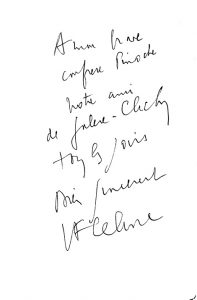 A mon brave
confrère Pinoche
notre ami
de Galère - Clichy
tous les jours
Bien sincèrement
LF Celine